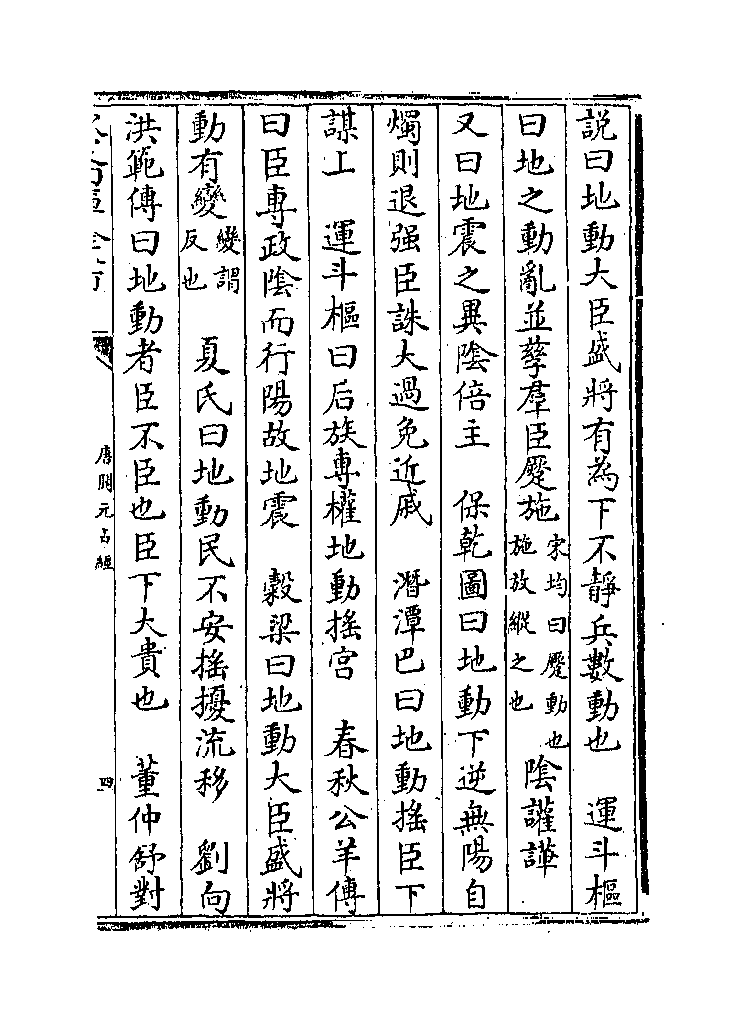 說曰地動大臣盛將有為下不靜兵數動也　運斗樞
曰地之動亂並孽羣臣蹷施宋均曰蹷動也施放縱之也陰讙譁
又曰地震之異陰倍主　保乾圖曰地動下逆無陽自
燭則退强臣誅大過免近戚　潛潭巴曰地動搖臣下
謀上　運斗樞曰后族專權地動搖宫　春秋公羊傳
曰臣專政陰而行陽故地震　穀梁曰地動大臣盛將
動有變變謂反也　夏氏曰地動民不安搖擾流移　劉向
洪範傳曰地動者臣不臣也臣下大貴也　董仲舒對
唐開元占經
四